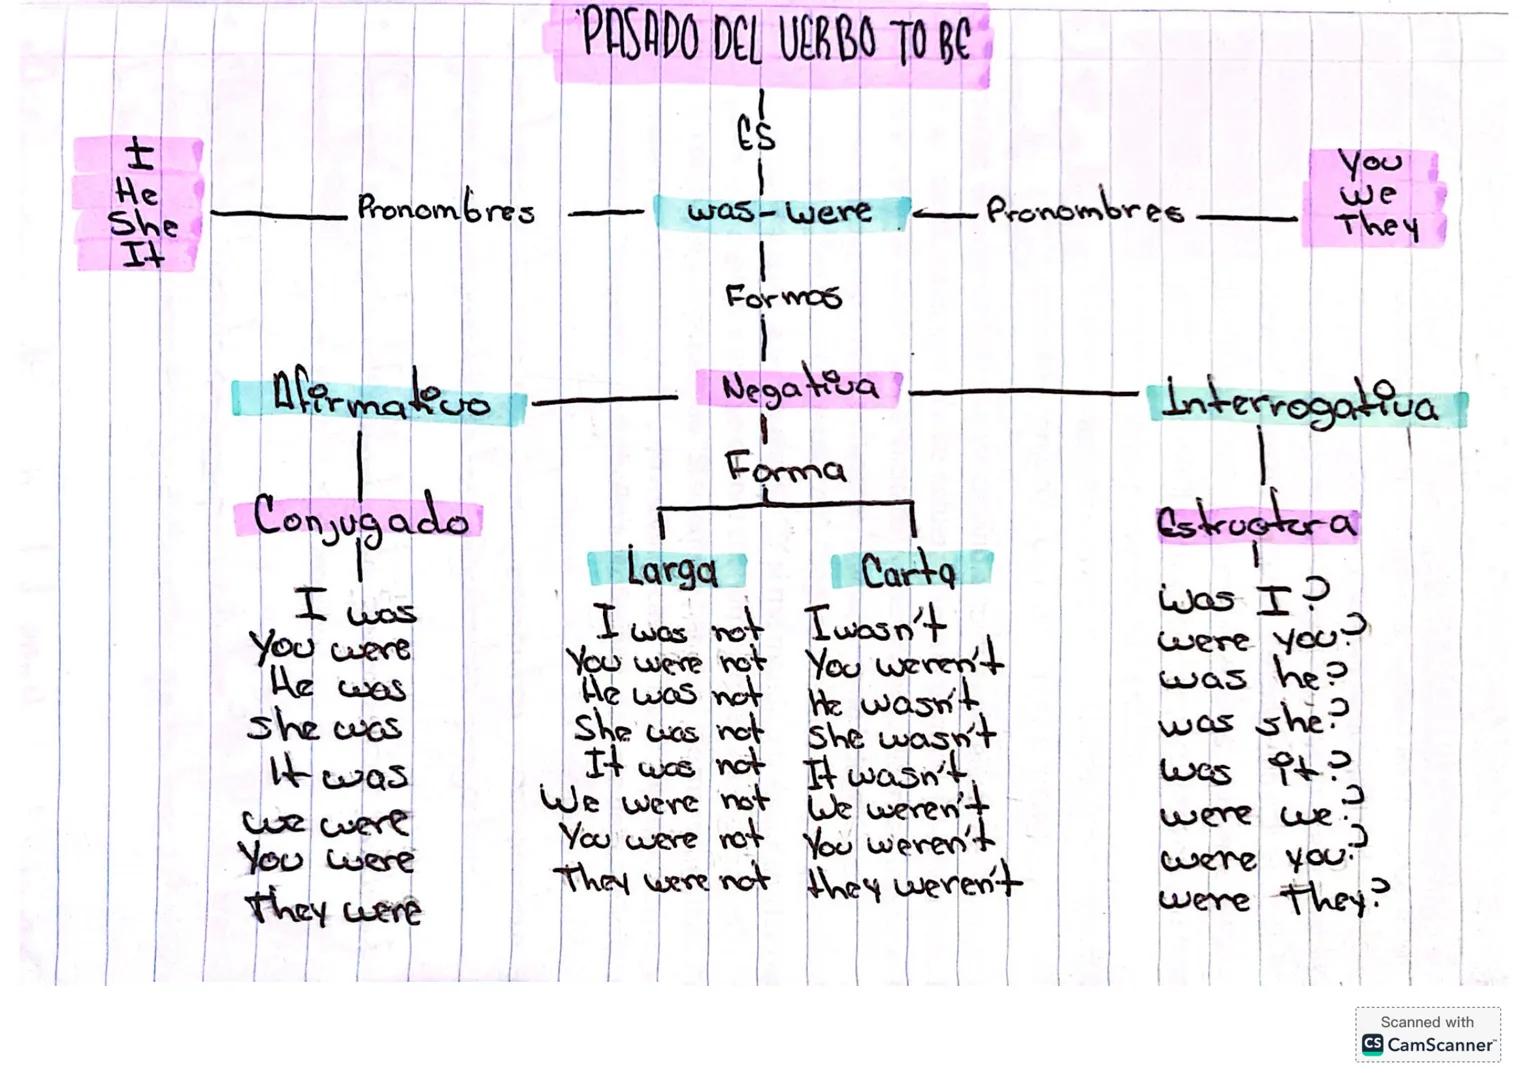 PASADO DEL VERBO TO BE
ES
I
He
She
It
Pronombres
was - were
Pronombres
You
we
They
Formas
Afirmativo
Negativa
Interrogativa
Forma
Conjugado
Larga
Corta
Estructura
I was
You were
He was
she was
It was
we were
You were
They were
I was not
You were not
He was not
She was not
It was not
We were not
You were not
They were not
I wasn't
You weren't
He wasn't
She wasn't
It wasn't
We weren't
You weren't
they weren't
Was I?
were you?
was he?
was she?
was it?
were we?
were you?
were They?
Scanned with
CS CamScanner